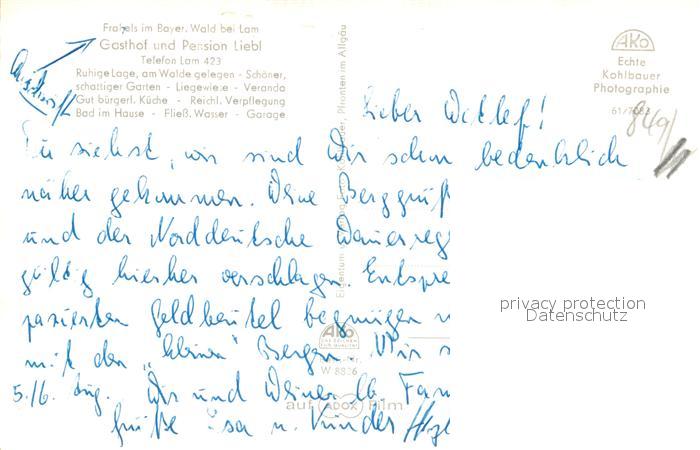 Frahels im Bayer. Wald bei Lam
Gasthof und Pension Liebl
Telefon Lam 423
Ruhige Lage, am Walde gelegen - Schöner,
schattiger Garten - Liegewiese - Veranda
Gut bürgerl. Küche - Reichl. Verpflegung
Bad im Hause - Fließ. Wasser - Garage
Anschrift
AKo
Echte
Kohlbauer
Photographie
849/
Lieber Detlef!
Du siehst, wir sind Dir schon bedenklich
näher gekommen. Deine Berggrüß
und der Norddeutsche Dauerreg
gültig hierher verschlagen. Entspre
pazierten Geldbeutel begnügen
mit den „kleinen" Bergen. Wir s
5./6. Aug. Dir und Deiner lb. Fam
Grüße Isa u. Kinder
Pfronten im Allgäu
AKo
W 8826
auf ADOX Film
privacy protection
Datenschutz